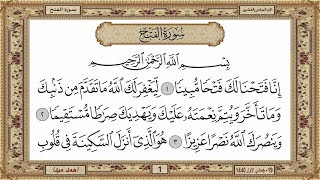 سورة الفتح
سُورَةُ الفَتْحِ
بِسْمِ اللَّهِ الرَّحْمَٰنِ الرَّحِيمِ
إِنَّا فَتَحْنَا لَكَ فَتْحًا مُّبِينًا ١ لِّيَغْفِرَ لَكَ اللَّهُ مَا تَقَدَّمَ مِن ذَنۢبِكَ
وَمَا تَأَخَّرَ وَيُتِمَّ نِعْمَتَهُۥ عَلَيْكَ وَيَهْدِيَكَ صِرَٰطًا مُّسْتَقِيمًا ٢
وَيَنصُرَكَ اللَّهُ نَصْرًا عَزِيزًا ٣ هُوَ الَّذِىٓ أَنزَلَ السَّكِينَةَ فِى قُلُوبِ
1